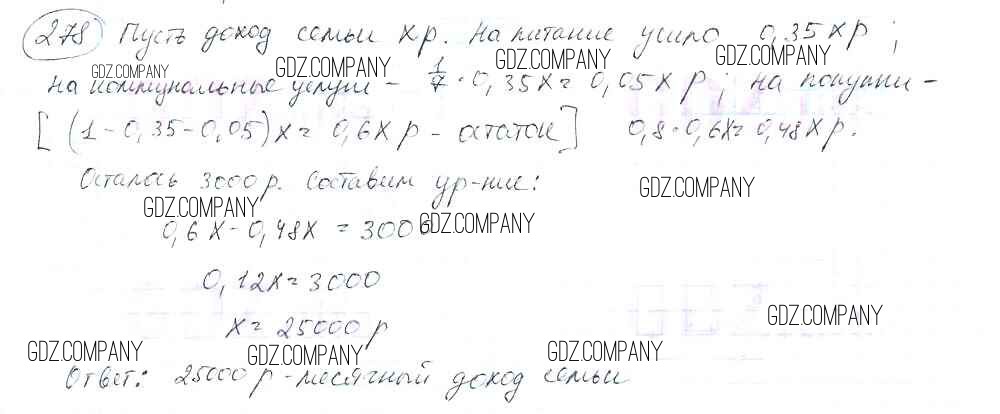 278 Пусть доход семьи x р. На питание ушло 0,35x р;
GDZ.COMPANY GDZ.COMPANY GDZ.COMPANY GDZ.COMPANY
на коммунальные услуги – 1/7 · 0,35x = 0,05x р; на покупки –
[(1 - 0,35 - 0,05)x = 0,6x р - остаток] 0,8 · 0,6x = 0,48x р.
Осталось 3000 р. Составим ур-ние:
GDZ.COMPANY
GDZ.COMPANY GDZ.COMPANY
0,6x - 0,48x = 3000
0,12x = 3000
x = 25000 р
GDZ.COMPANY
GDZ.COMPANY GDZ.COMPANY GDZ.COMPANY
Ответ: 25000 р - месячный доход семьи